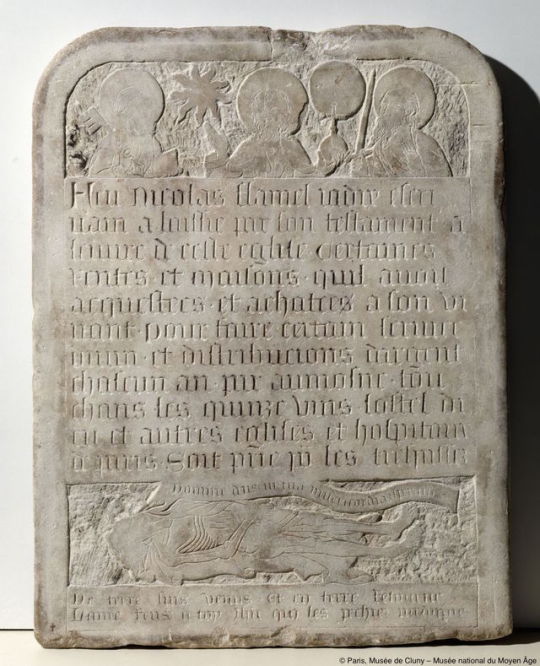 Feu Nicolas flamel iadiz escri
uain a laissie par son testament a
leuure de ceste eglise certaines
rentes et maisons quil auoit
acquestees et achatees a son vi
uant pour faire certain seruice
diuin et distribucions dargent
chascun an par aumosne tou
chans les quinze vins lostel di
eu et autres eglises et hospitaux
de paris Soit prie les trespassez
Domine deus in tua misericordia speraui
De terre suis venus et en terre retourne
Lame rens a toy ihu qui les pechiez pardonne
© Paris, Musée de Cluny – Musée national du Moyen Âge